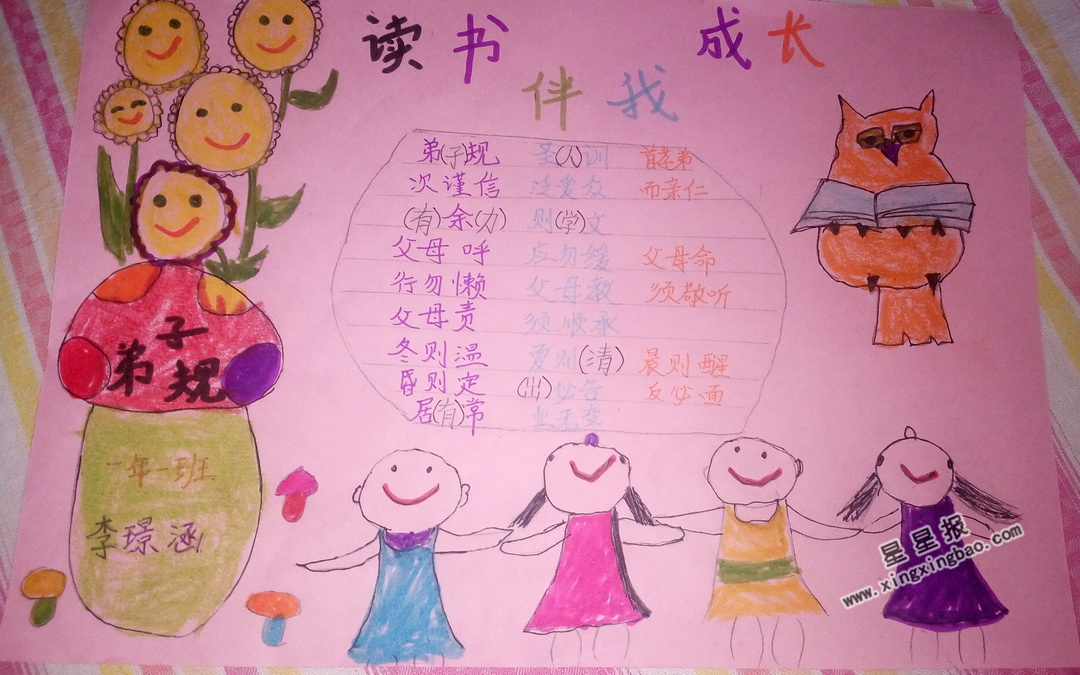 读书 成长
伴我
弟(子)规 圣(人)训 首孝弟
次谨信 泛爱众 而亲仁
(有)余(力) 则(学)文
父母呼 应勿缓 父母命
行勿懒 父母教 须敬听
父母责 须顺承
冬则温 夏则(清) 晨则醒
昏则定 (出)必告 反必面
居(有)常 业无变
弟子规
一年一班
李璟涵
星星报
www.xingxingbao.com